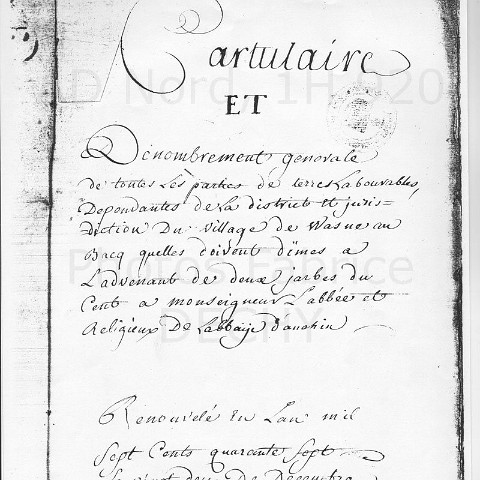 Cartulaire
ET
Dénombrement generale
de toutes Les parties de terres Labourables,
Dependantes de La district et juris-
-diction Du village de Wasne au
Bacq quelles doivent dîmes a
L'advenant de deux jarbes du
Cent a monseigneur L'abbée et
Religieux De L'abbaije d'anchin
Renouvelé en Lan mil
Sept Cents quarante Sept
De Decembre
AD Nord, 1H
DECHY